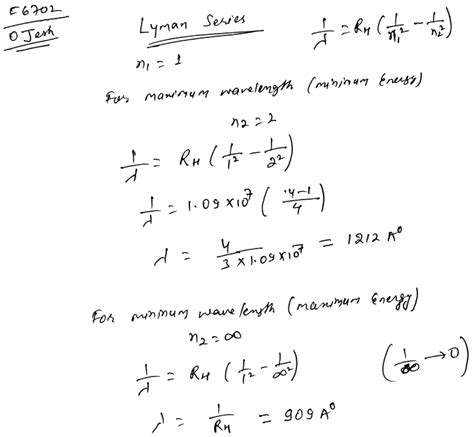 E6702
OJesh
Lyman Series
1/λ = R_H (1/n₁² - 1/n₂²)
n₁ = 1
For maximum wavelength (minimum Energy)
n₂ = 2
1/λ = R_H (1/1² - 1/2²)
1/λ = 1.09 × 10⁷ (4-1/4)
λ = 4/3 × 1.09 × 10⁷ = 1212 A⁰
For minimum wavelength (maximum Energy)
n₂ = ∞
1/λ = R_H (1/1² - 1/∞²)
(1/∞ → 0)
λ = 1/R_H = 909 A⁰